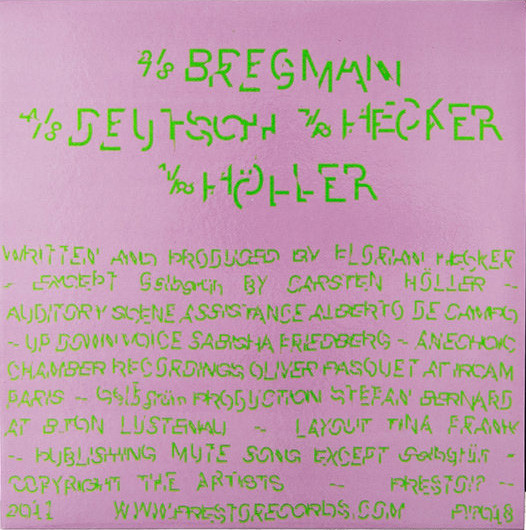 2/8 BREGMAN
4/8 DEUTSCH 7/8 HECKER
1/8 HÖLLER
WRITTEN AND PRODUCED BY FLORIAN HECKER
~ EXCEPT Gelbgrün BY CARSTEN HÖLLER ~
AUDITORY SCENE ASSISTANCE ALBERTO DE CAMPO
~ UP DOWN VOICE SABISHA FRIEDBERG ~ ANECHOIC
CHAMBER RECORDINGS OLIVER PASQUET AT IRCAM
PARIS ~ Gelbgrün PRODUCTION STEFAN BERNARD
AT B.TON LUSTENAU ~ LAYOUT TINA FRANK
~ PUBLISHING MUTE SONG EXCEPT Gelbgrün ~
COPYRIGHT THE ARTISTS ~ PRESTO!?
2011 WWW.PRESTORECORDS.COM P!?018